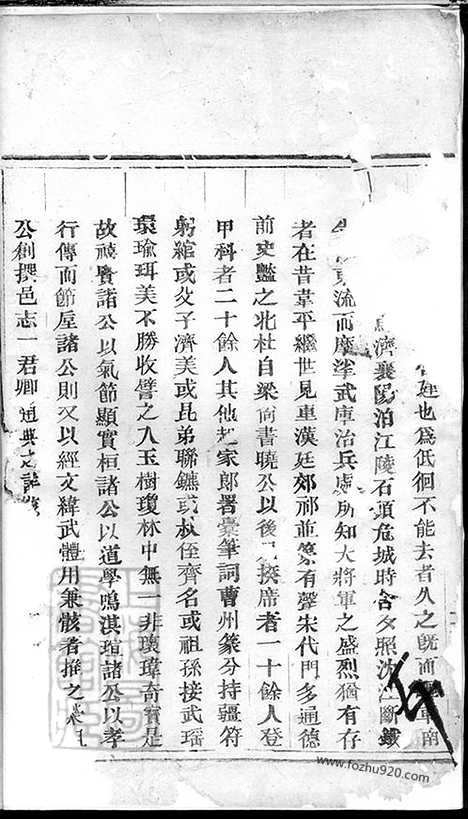 建也為低徊不能去者久之既而軍南
濟襄陽泊江陵石頭危城時含夕照沈江斷鐵
東流而摩挲武庫治兵處所知大將軍之盛烈猶有存
者在昔韋平繼世見重漢廷郊祁並篆有聲宋代門多通德
前史豔之北杜自梁尚書曉公以後揆席者一十餘人登
甲科者二十餘人其他起家郎署橐筆詞曹州篆分持疆符
躬綰或父子濟美或昆弟聯鑣或叔侄齊名或祖孫接武瑤
環瑜珥美不勝收譬之入玉樹瓊林中無一非瓌瑋奇寶是
故禎賓諸公以氣節顯實桓諸公以道學鳴淇瑄諸公以孝
行傳而節屋諸公則又以經文緯武體用兼骸著推之
公創撰邑志一君卿通典之
www.fozhu920.com